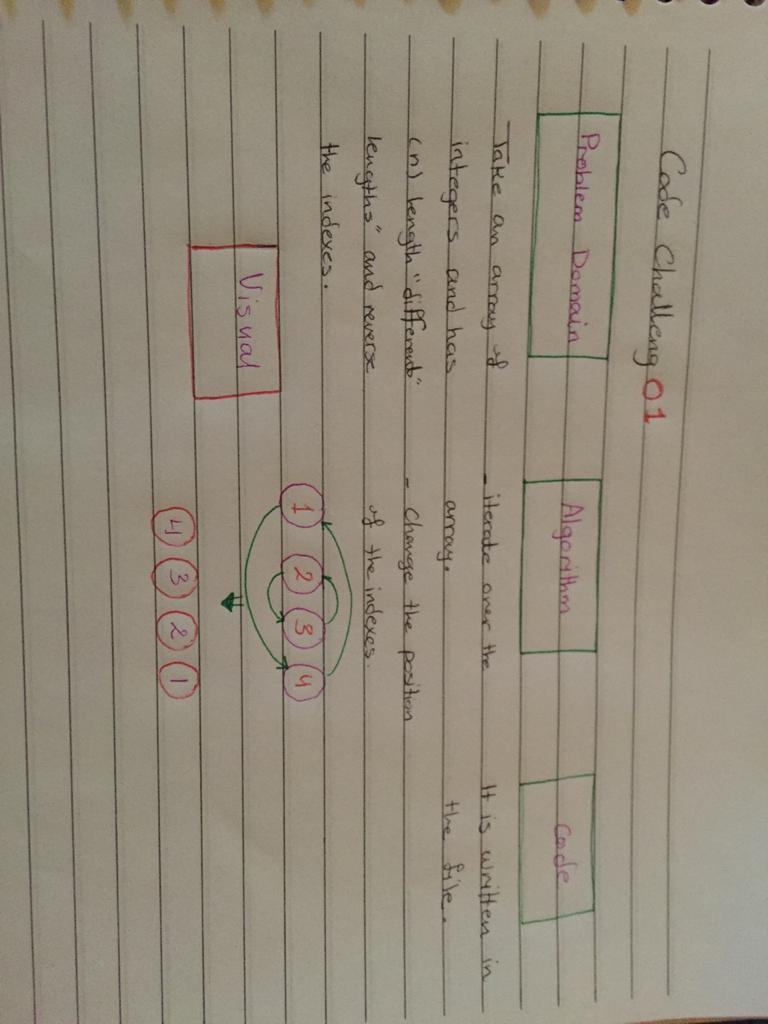 Code Challeng 01
Problem Domain
Take an array of
integers and has
(n) length "different"
lengths" and reverse
the indexes.
Algorithm
- iterate over the
array.
- Change the position
of the indexes.
Code
It is written in
the file.
Visual
1 2 3 4
4 3 2 1